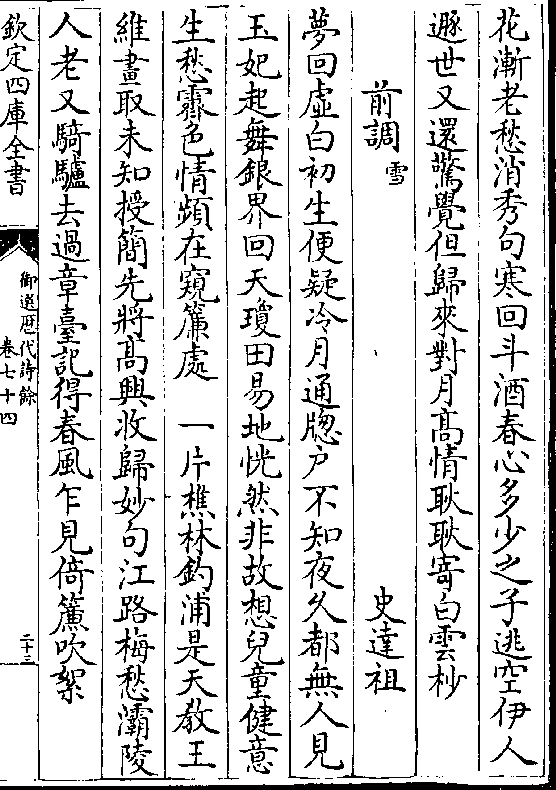 花漸老愁消秀句寒回斗酒春心多少之子逃空伊人
遯世又還驚覺但歸來對月高情耿耿寄白雲杪
前調 雪 史達祖
夢回虛白初生便疑冷月通牕戸不知夜久都無人見
玉妃起舞銀界回天瓊田易地恍然非故想兒童健意
生愁霽色情頻在窺簾處 一片樵林釣浦是天教王
維畫取未知授簡先將高興收歸妙句江路梅愁灞陵
人老又騎驢去過章臺記得春風乍見倚簾吹絮
欽定四庫全書
御選歷代詩餘
卷七十四
二十三